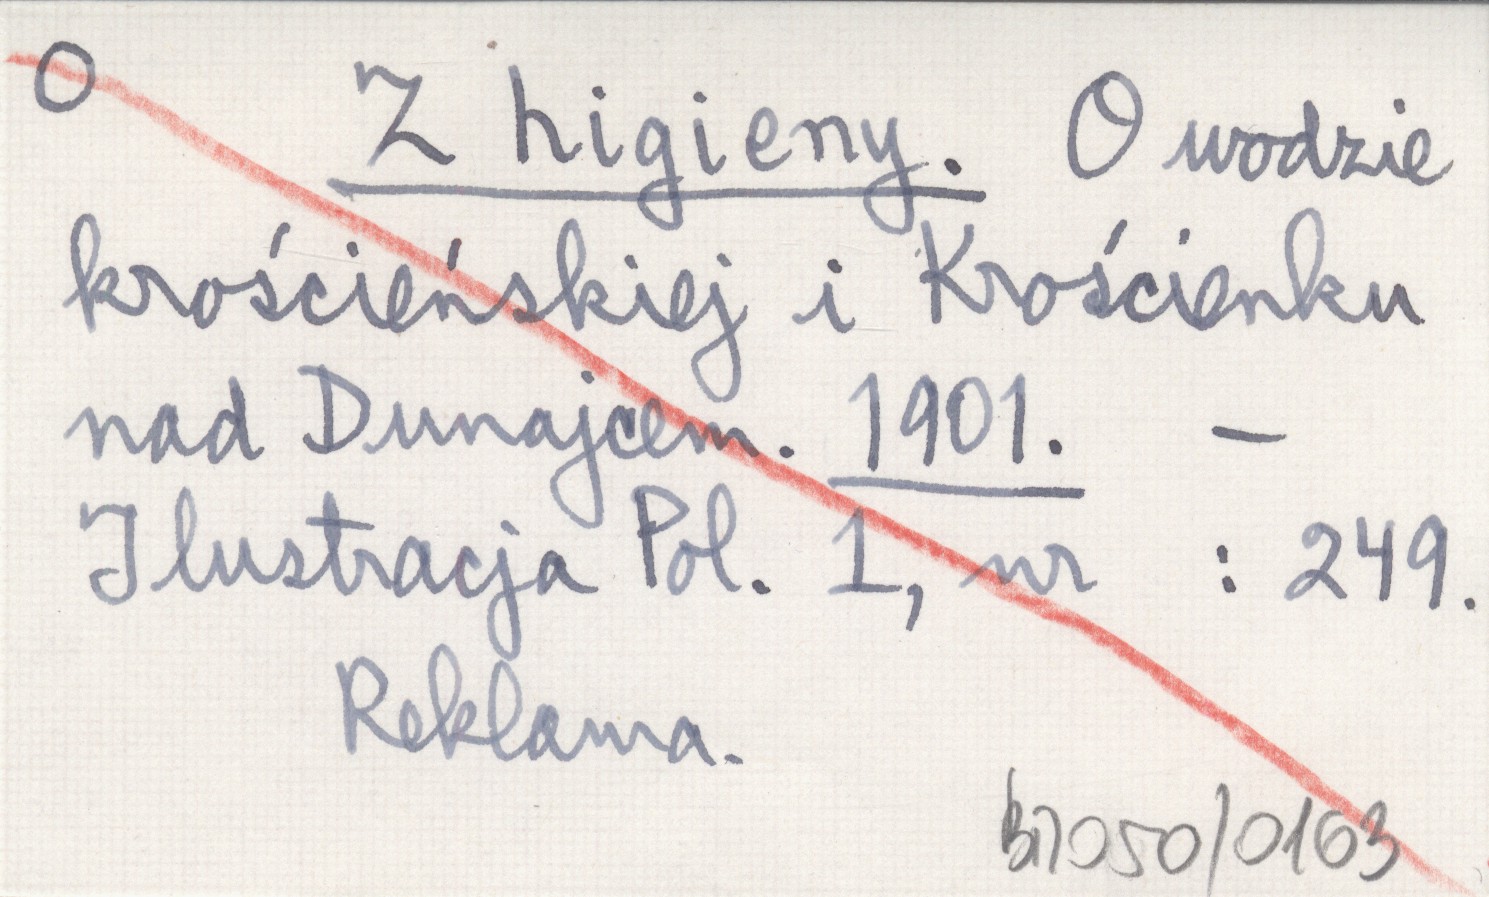 O Z higieny. O wodzie
krościeńskiej i Krościenku
nad Dunajcem. 1901. –
Ilustracja Pol. 1, nr : 249.
Reklama.
050/0163